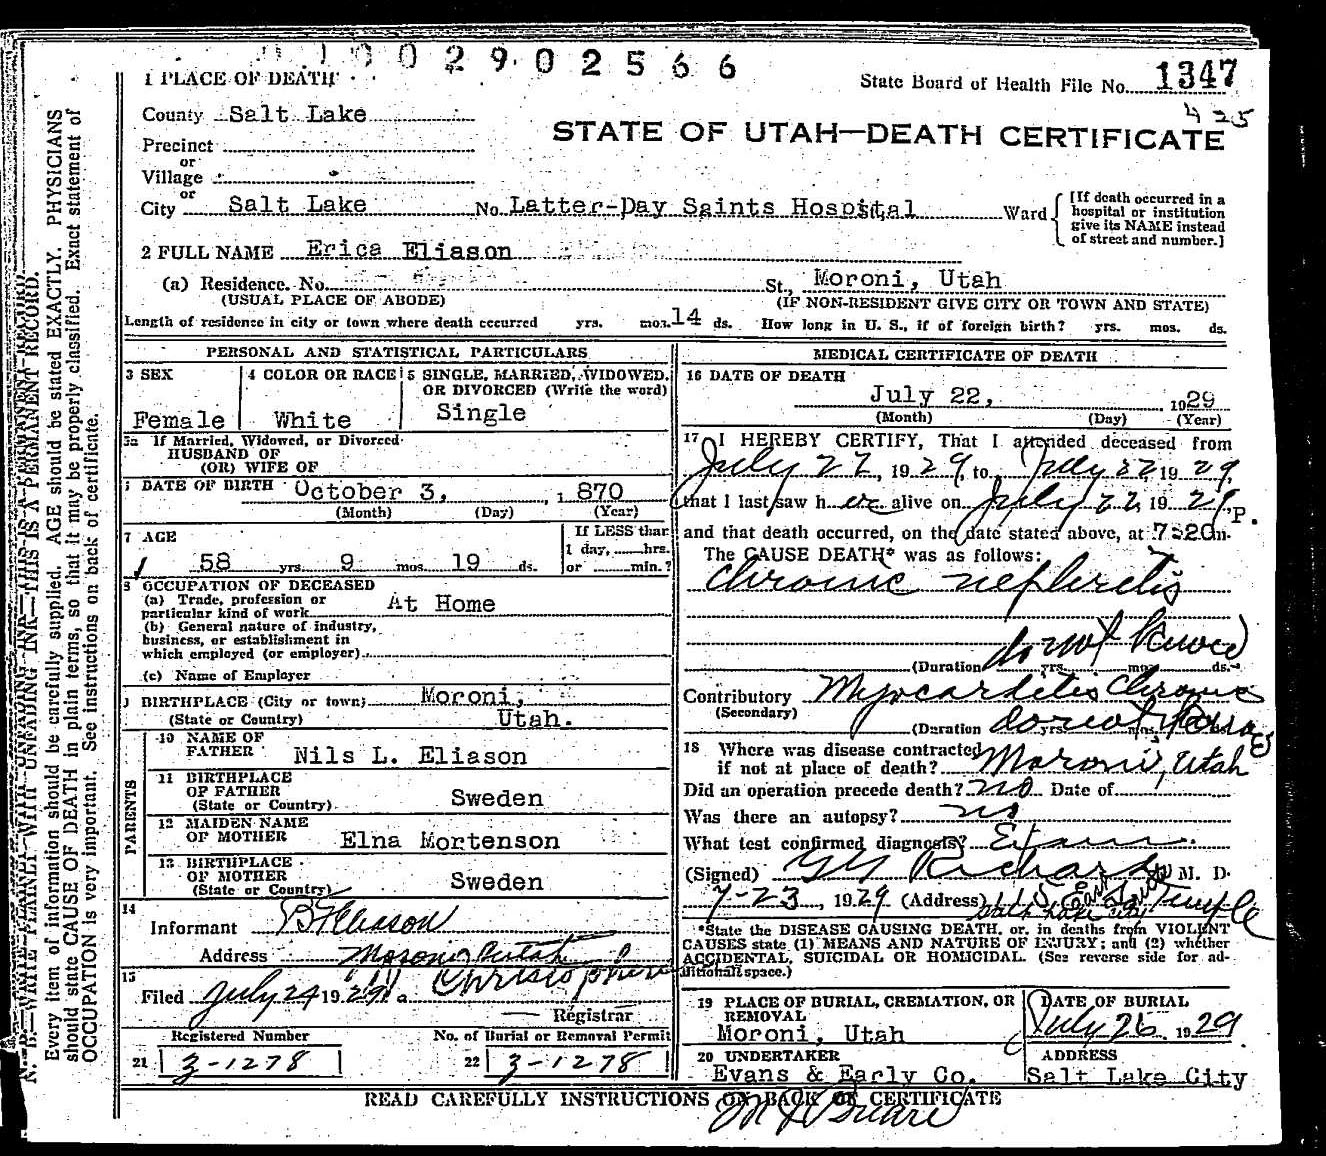 0 0 2 9 0 2 5 6 6
1 PLACE OF DEATH
State Board of Health File No. 1347
425
County Salt Lake
STATE OF UTAH—DEATH CERTIFICATE
Precinct
or
Village
or
City Salt Lake No. Latter-Day Saints Hospital Ward
[If death occurred in a hospital or institution give its NAME instead of street and number.]
2 FULL NAME Erica Eliason
(a) Residence. No. St., Moroni, Utah
(USUAL PLACE OF ABODE) (IF NON-RESIDENT GIVE CITY OR TOWN AND STATE)
Length of residence in city or town where death occurred yrs. mos. 14 ds. How long in U. S., if of foreign birth? yrs. mos. ds.
PERSONAL AND STATISTICAL PARTICULARS
3 SEX
Female
4 COLOR OR RACE
White
5 SINGLE, MARRIED, WIDOWED, OR DIVORCED (Write the word)
Single
5a If Married, Widowed, or Divorced
HUSBAND OF
(OR) WIFE OF
DATE OF BIRTH October 3, 1870
(Month) (Day) (Year)
7 AGE
58 yrs. 9 mos. 19 ds.
If LESS than
1 day, hrs.
or min.?
8 OCCUPATION OF DECEASED
(a) Trade, profession or
particular kind of work At Home
(b) General nature of industry,
business, or establishment in
which employed (or employer)
(c) Name of Employer
BIRTHPLACE (City or town) Moroni,
(State or Country) Utah.
PARENTS
10 NAME OF
FATHER Nils L. Eliason
11 BIRTHPLACE
OF FATHER
(State or Country) Sweden
12 MAIDEN NAME
OF MOTHER Elna Mortenson
13 BIRTHPLACE
OF MOTHER
(State or Country) Sweden
14
Informant B Eliason
Address Moroni Utah
15
Filed July 24 1929
Registrar
Registered Number No. of Burial or Removal Permit
21 3-1278 22 3-1278
MEDICAL CERTIFICATE OF DEATH
16 DATE OF DEATH
July 22, 1929
(Month) (Day) (Year)
17 I HEREBY CERTIFY, That I attended deceased from
July 22, 1929, to July 22 1929
that I last saw her alive on July 22 1929,
and that death occurred, on the date stated above, at 7:20 P.m.
The CAUSE DEATH* was as follows:
Chronic nephritis
do not know
(Duration yrs. mos. ds.
Contributory Myocarditis Chronic
(Secondary)
(Duration do not know yrs. mos.
18 Where was disease contracted
if not at place of death? Moroni, Utah
Did an operation precede death? no Date of
Was there an autopsy? no
What test confirmed diagnosis? Exam.
(Signed) G G Richards M. D.
7-23, 1929 (Address) 115 East South Temple
Salt Lake City
*State the DISEASE CAUSING DEATH, or, in deaths from VIOLENT
CAUSES state (1) MEANS AND NATURE OF INJURY; and (2) whether
ACCIDENTAL, SUICIDAL OR HOMICIDAL. (See reverse side for ad-
ditional space.)
19 PLACE OF BURIAL, CREMATION, OR
REMOVAL
Moroni, Utah
DATE OF BURIAL
July 26, 1929
20 UNDERTAKER
Evans & Early Co.
ADDRESS
Salt Lake City
READ CAREFULLY INSTRUCTIONS ON BACK OF CERTIFICATE
N. B.—WRITE PLAINLY WITH UNFADING INK—THIS IS A PERMANENT RECORD.
Every item of information should be carefully supplied. AGE should be stated EXACTLY. PHYSICIANS
should state CAUSE OF DEATH in plain terms, so that it may be properly classified. Exact statement of
OCCUPATION is very important. See instructions on back of certificate.